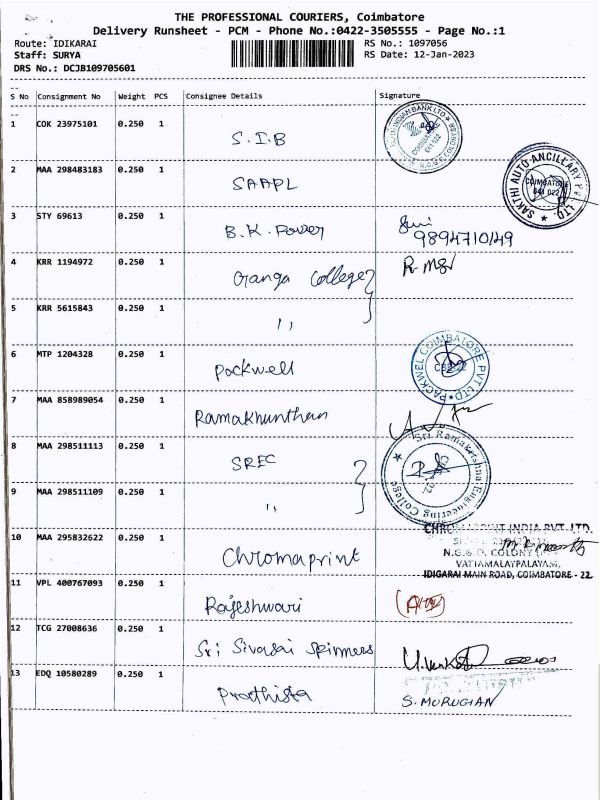 THE PROFESSIONAL COURIERS, Coimbatore
Delivery Runsheet - PCM - Phone No.:0422-3505555 - Page No.:1
Route: IDIKARAI RS No.: 1097056
Staff: SURYA RS Date: 12-Jan-2023
DRS No.: DCJB109705601
S No Consignment No Weight PCS Consignee Details Signature
1 COK 23975101 0.250 1 S.I.B
2 MAA 298483183 0.250 1 SAAPL
SAKTHI AUTO ANCILLARY PVT. LTD.
COIMBATORE
641 022
3 STY 69613 0.250 1 B.K. Power
9894710149
4 KRR 1194972 0.250 1 Ganga College
5 KRR 5615843 0.250 1 ,,
6 MTP 1204328 0.250 1 Packwell
PACKWEL COIMBATORE PVT LTD
7 MAA 858989054 0.250 1
8 MAA 298511113 0.250 1 SREC
Sri Ramakrishna Engineering College
9 MAA 298511109 0.250 1 ,,
10 MAA 295832622 0.250 1 Chromaprint
CHROMAPRINT INDIA PVT. LTD.
N.G.G.O. COLONY
VATTAMALAIPALAYAM,
IDIGARAI MAIN ROAD, COIMBATORE - 22.
11 VPL 400767093 0.250 1 Rajeshwari
12 TCG 27008636 0.250 1 Sri Sivasai Spinners
13 EDQ 10580289 0.250 1 Prathista
S. MURUGIAN